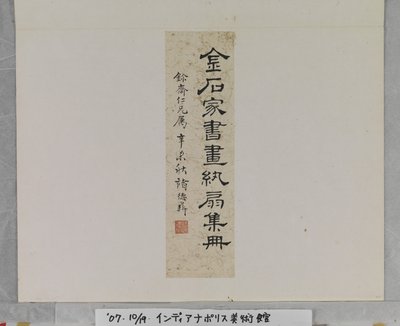 金石家書畫紈扇集冊
餘齋仁兄属 辛未秋 褚德彝
'07.10/19 インディアナポリス美術館